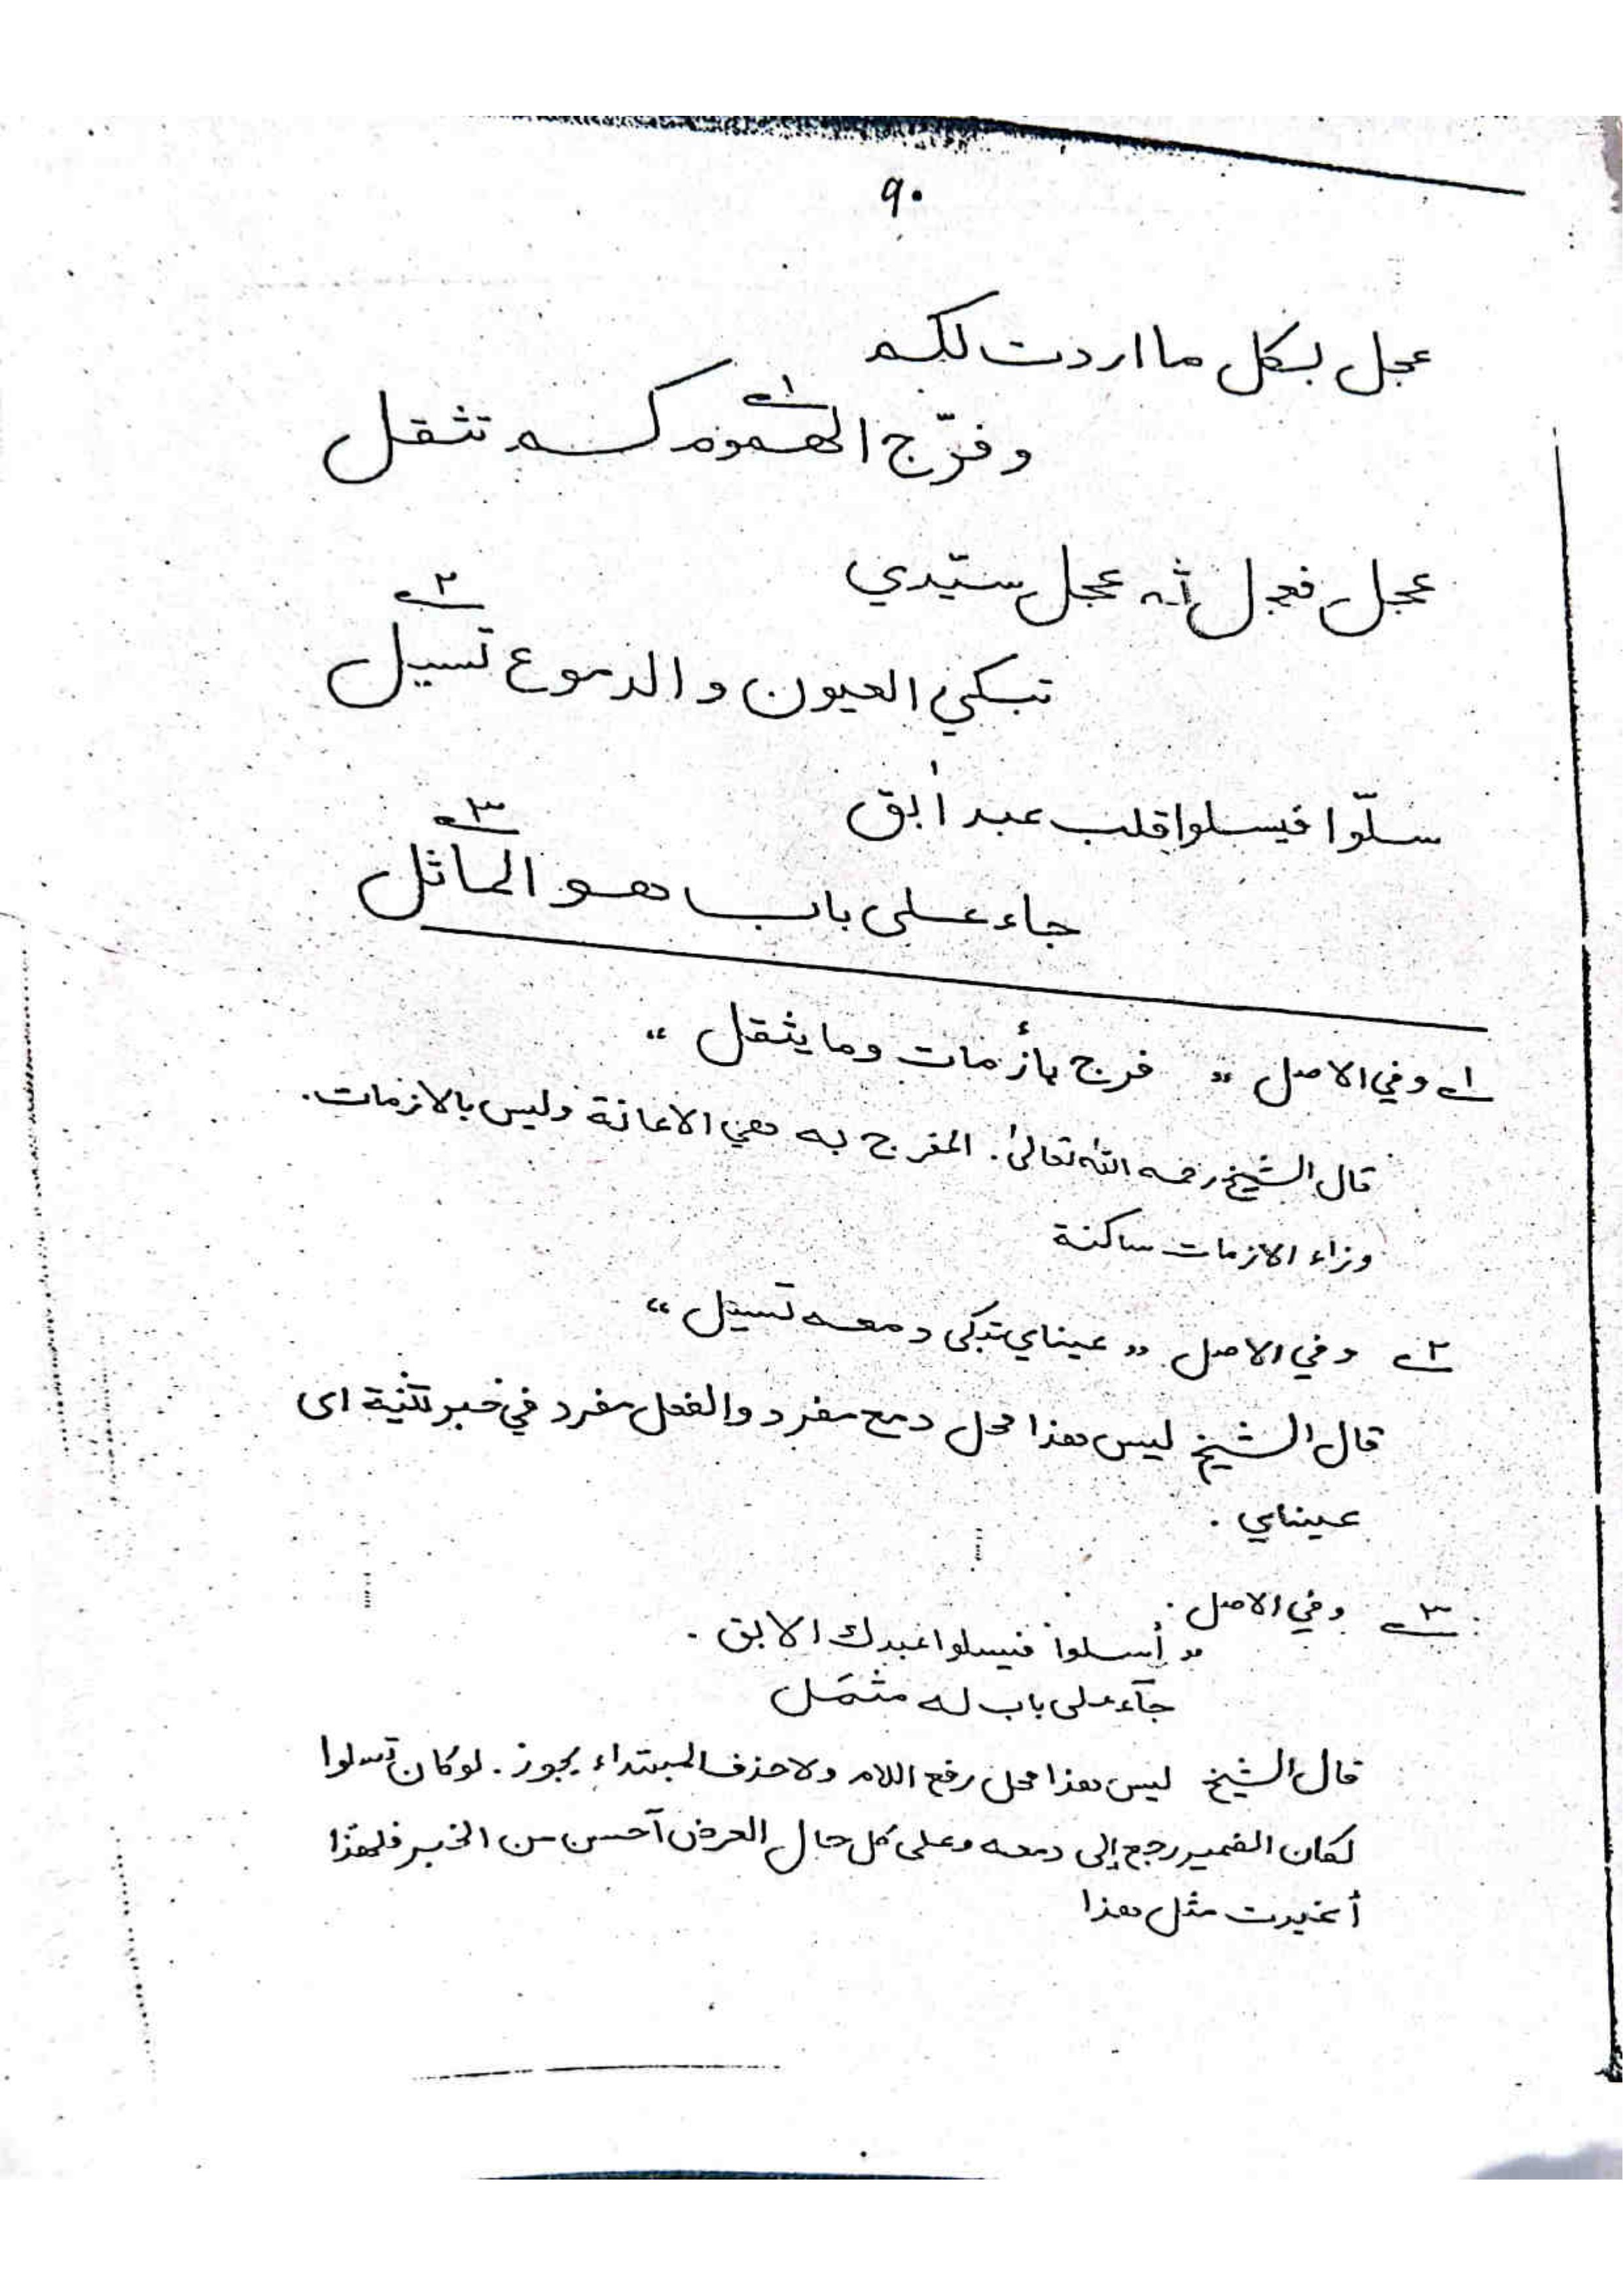 ٩٠
عجل بكل ما اردت لكم
وفرّج الهموم كم تثقل ١
عجل فعجل ثم عجل سيّدي
تبكي العيون و الدموع تسيل ٢
سلّوا فيسلوا قلب عبد ابق
جاء على باب هو الماثل ٣
١ وفي الاصل „ فرج بأزمات وما يثقل “
قال الشيخ رحمه الله تعالى. المفرج به هي الاعانة وليس بالازمات.
وزاء الازمات ساكنة
٢ وفي الاصل „ عيناي تبكى دمعه تسيل “
قال الشيخ ليس هذا محل دمع مفرد والفعل مفرد في خبر تثنية اى
عيناي .
٣ وفي الاصل .
„ أسلوا فيسلوا عبدك الابق .
جآء على باب له مثمَل
قال الشيخ ليس هذا محل رفع اللام ولا حذف المبتداء يجوز . لوكان تسلوا
لكان الضمير رجع إلى دمعه وعلى كل حال العرض آحسن من الخبر فلهذا
أغيرت مثل هذا